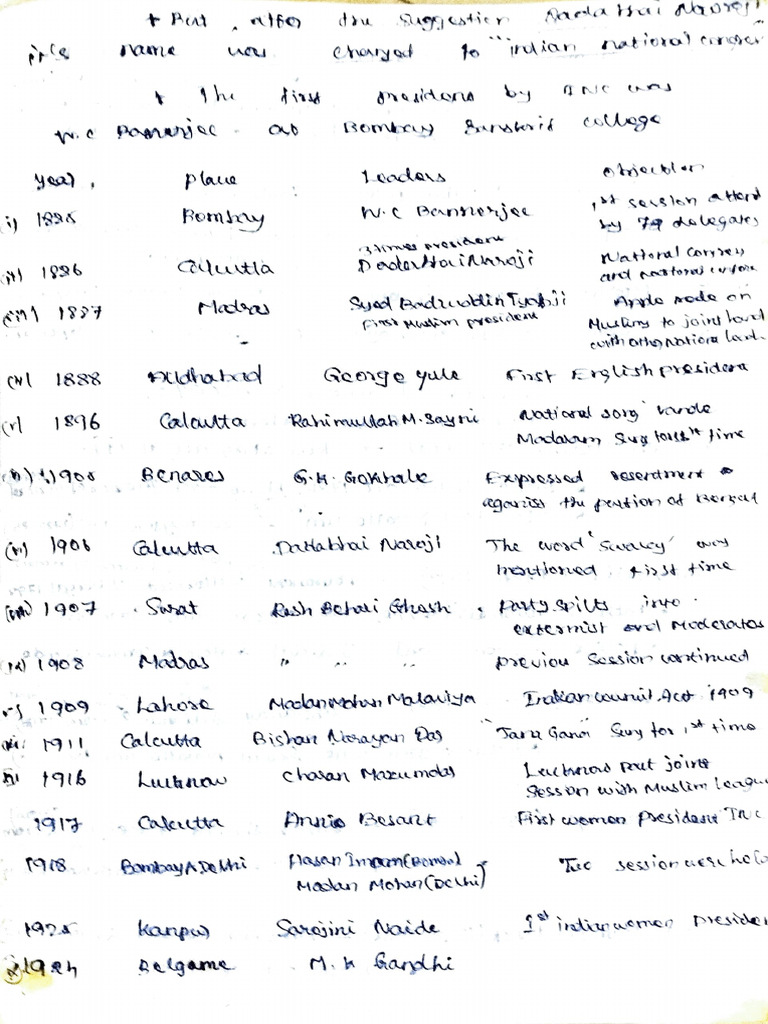 * But, after the suggestion Dadabhai Naoroji
it's name was changed to "indian national congres
* The first president by INC was
W.C Bannerjee at Bombay Sanskrit college
year, place Leaders objection
i) 1885 Bombay W.C Bannerjee 1st session attend by 72 delegates
ii) 1886 Calcutta 3 times president DadabHai Naroji National Congres and national
iii) 1887 Madras Syed Badruddin Tyabji First Muslim president made on Muslims to joint hand with other National
iv) 1888 Allahabad George yule First English president
v) 1896 Calcutta Rahimullah M. Sayni National song Madaram Sung for 1st time
1905 Benares G.K. Gokhale Expressed resentment against the partion of Bengal
1906 Calcutta Dadabhai Naroji The word 'Swaraj' was mentioned first time
1907 Surat Rash Behari Ghosh party splits into extermist and Moderates
1908 Madras " " " previous Session continued
1909 Lahore Madan Mohan Malaviya Indian council Act 1909
1911 Calcutta Bishan Narayan Das "Jana Gana" Sung for 1st time
1916 Lucknow Charan Mazumdar Lucknow pact joint Session with Muslim League
1917 Calcutta Annie Besant First women President INC
1918 Bombay & Delhi Hasan Imam (Bombay) Madan Mohan (Delhi) Two session were held
1925 Kanpur Sarojini Naide 1st indian women presiden
1924 Belgame M.K Gandhi